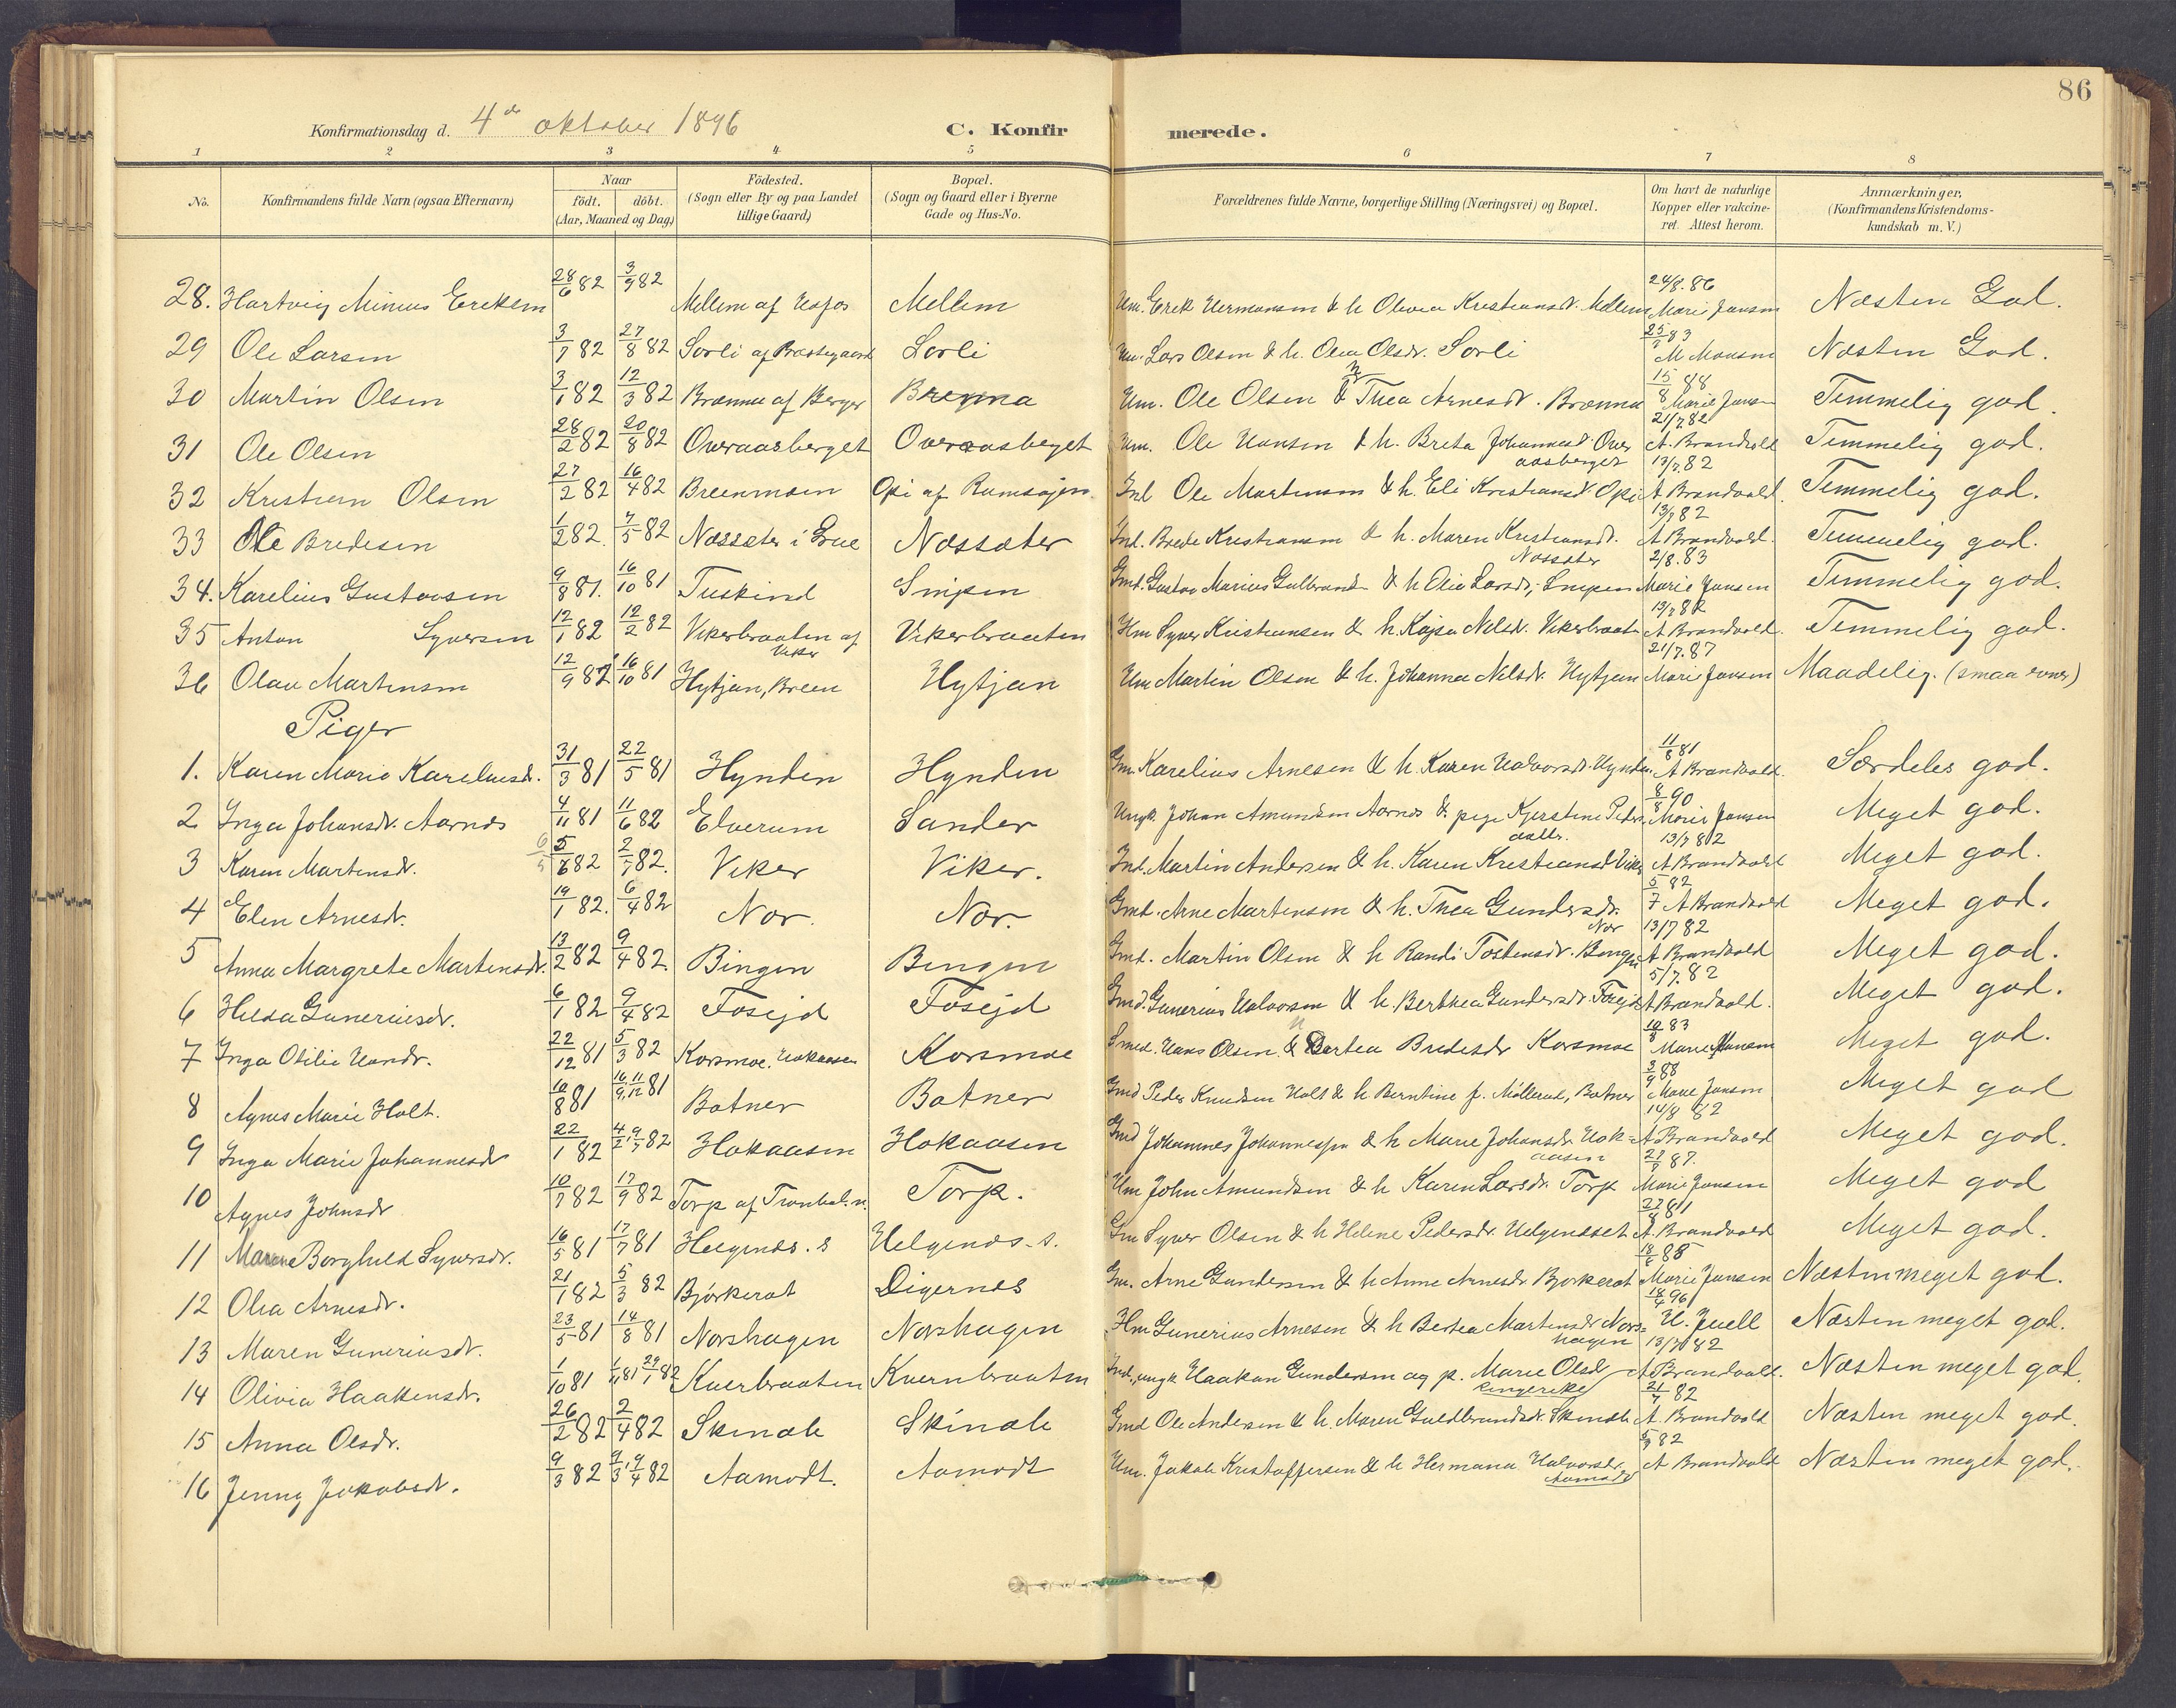 86
Konfirmationsdag d. 4de oktober 1896 C. Konfir merede.
1 2 3 4 5 6 7 8
No. Konfirmandens fulde Navn (ogsaa Efternavn) Naar födt. döbt. (Aar, Maaned og Dag) Födested. (Sogn eller By og paa Landet tillige Gaard) Bopæl. (Sogn og Gaard eller i Byerne Gade og Hus-No. Forældrenes fulde Navne, borgerlige Stilling (Næringsvei) og Bopæl. Om havt de naturlige Kopper eller vakcineret. Attest herom. Anmærkninger, (Konfirmandens Kristendomskundskab m. V.)
28. Hartvig Minius Ereksen 28/6 82 3/9 82 Mellem af Mellem Um. Erek Hermansen & h Olivia Kristiansd. Mellem 24/8. 86 Marie Jansen Næsten God.
29 Ole Larsen 3/7 82 27/8 82 Sorli af Præstegaard Sorli Um. Lars Olsen & h. Olea Olsdr. Sorli 83 M Monsen Næsten God.
30 Martin Olsen 3/1 82 12/3 82 Brænna af Berger Brænna Um. Ole Olsen & Thea Arnesdr. Brænna 15/8 88 Marie Jansen Temmelig god.
31 Ole Olsen 28/2 82 20/8 82 Overaasberget Overaasberget Um. Ole Hansen & h. Breta Johannesd. Overaasberget 21/7 82 A. Brandvold Temmelig god.
32 Kristian Olsen 27/2 82 16/4 82 Breenmoen Opi af Ramsøjen Ind. Ole Martinsen & h. Eli Kristiansd. Opi 13/7. 82 A Brandvold. Temmelig god.
33 Ole Bredesen 1/2 82. 7/5 82 Næssæter i Grue Næssæter Ind. Brede Kristiansen & h. Maren Kristiansd. Næssæter 13/7 82 A Brandvold. Temmelig god.
34. Karelius Gustavsen 9/8 81. 16/10 81 Tuskind Snipen Gmd. Gustav Marius Gulbrands. & h Elia Larsdr, Snipen 2/8. 83 Marie Jansen Temmelig god.
35 Anton Syversen 12/1 82 12/2 82 Vikerbraaten af Viker Vikerbraaten Hm Syver Kristiansen & h. Kajsa Nelsd. Vikerbraat. 13/7 82 A Brandvold. Temmelig god.
36 Olav Martinsen 12/9 81 16/10 81 Hytjan, Breen Hytjan Um Martin Olsen & h. Johanna Nelsdr. Hytjan 21/7. 87 Marie Jansen Maadelig. (smaa evner)
Piger
1. Karen Marie Kareliusd. 31/3 81 22/5 81 Hynden Hynden Gm Karelius Arnesen & h. Karen Halvorsd. Hynden 11/8 81 A Brandvold. Særdeles god.
2 Inga Johansdr. Aarnes 4/11 81 11/6 82 Elverum Sander Ungk Johan Amundsen Aarnes & pige Kjerstine Pedersdatter. 8/8 90 Marie Jansen Meget god.
3 Karen Martinsdr. 5/6 82 2/7 82. Viker Viker. Ind. Martin Andersen & h. Karen Kristiansd Viker 13/7 82 A Brandvold Meget god.
4 Elen Arnesdr. 19/1 82. 6/4 82 Nor. Nor. Gmd. Arne Martinsen & h. Thea Gundersdr. Nor 5/7 82 A Brandvold Meget god.
5 Anna Margrete Martinsdr. 13/2 82 9/4 82. Bingen Bingen Gmd. Martin Olsen & h Randi Tostensdr. Bingen 13/7 82 A Brandvold Meget god.
6 Helda Guneriusdr. 6/1 82 9/4 82 Fosejd Fosejd Gmd. Gunerius Halvorsen & h. Berthea Gundersdr. Fosejd 5/7. 82 A Brandvold. Meget god.
7 Inga Otilie Hansdr. 22/12 81 5/3 82 Korsmoe. Hokaasen Korsmoe Smed. Hans Olsen & Bertea Bredesdr Korsmoe 83 Marie Jansen Meget god.
8 Agnes Marie Holt. 10/8 81 16/9, 11/12 81 Botner Botner Gmd Peder Knudsen Holt & h Berntine f. Møllerud, Botner 88 Marie Jansen Meget god
9 Inga Marie Johannesdr 22/1 82 4/2, 9/7 82 Hokaasen Hokaasen Gmd Johannes Johannesen & h Marie Johansdr. Hokaasen 14/8 82 A Brandvold Meget god.
10 Agnes Johnsdr 10/7 82 17/9 82 Torp af Tronbøl. n. Torp. Um John Amundsen & h Karen Larsdr. Torp 87. Marie Jansen Meget god
11 Maren Borghild Syversdr. 16/5 81 17/7 81 Helgenæs. s Helgenæs. s. Gm Syver Olsen & h Helene Pedersdr. Helgenæset 81 A Brandvold Meget god.
12 Olea Arnesdr. 21/1 82 5/3 82 Bjørkerot Digernæs Gm. Arne Gundersen & h Anne Arnesdr Bjorkerot 88 Marie Jansen Næsten meget god.
13 Maren Guneriusdr. 23/5 81 14/8 81 Norshagen Norshagen Hm Gunerius Arnesen & h Bertea Martinsdr Norshagen 18/4 96 H. Juell Næsten meget god.
14 Olivia Haakensdr. 1/10 81 Kvernbraaten Kvernbraaten Ind, ungk Haakan Gundersen og p. Marie Olsdr Ringerike 13/7 82 A Brandvold. Næsten meget god.
15 Anna Olsdr. 26/2 82 2/4 82 Skinale Skinale Gmd Ole Andersen & h. Maren Guldbrandsdr. Skinale 21/7 82 A. Brandvold Næsten meget god.
16 Jenny Jakobsdr. 9/3 82 9/3, 9/4 82 Aamodt. Aamodt Um. Jakob Kristoffersen & h Hermana Halvorsdr. Aamodt 82 A Brandvold Næsten meget god.